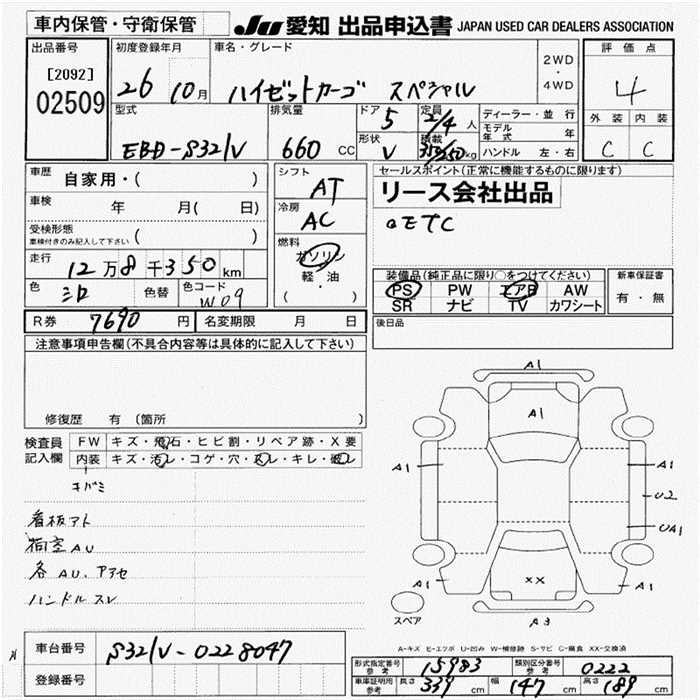 車内保管・守衛保管
JU 愛知 出品申込書 JAPAN USED CAR DEALERS ASSOCIATION
出品番号
[2092]
02509
初度登録年月
26 10月
車名・グレード
ハイゼットカーゴ スペシャル
2WD
・
4WD
評価点
4
外装 内装
C C
型式
EBD-S321V
排気量
660 CC
ドア 5
形状 V
定員 2/4 人
積載 350/250 kg
ディーラー・並行
モデル年式 年
ハンドル 左・右
車歴 自家用・( )
車検 年 月( 日)
受検形態
車検付きのみ記入して下さい ( )
走行 12万8千350km
色 シロ 色替 色コード W09
シフト
AT
冷房
AC
燃料
ガソリン
軽・油
( )
セールスポイント(正常に機能するものに限ります)
リース会社出品
ETC
装備品(純正品に限り○をつけてください)
PS PW エアB AW
SR ナビ TV カワシート
新車保証書
有・無
R券 7690円 名変期限 月 日
後日品
注意事項申告欄(不具合内容等は具体的に記入して下さい)
修復歴 有 (箇所 )
検査員記入欄
FW キズ・飛石・ヒビ割・リペア跡・X要
内装 キズ・汚レ・コゲ・穴・スレ・キレ・破レ
キバミ
看板アト
荷室AU
各AU、アテセ
ハンドルスレ
A1
A1
A1 A1
U2
UA1
XX
A1 A1
スペア A3
A-キズ E-エクボ U-凹み W-補修跡 S-サビ C-腐食 XX-交換済
車台番号 S321V-0228047
登録番号
形式指定番号 参考 15983 類別区分番号 参考 0222
車庫証明用 参考 長さ 339 cm 幅 147 cm 高さ 189 cm